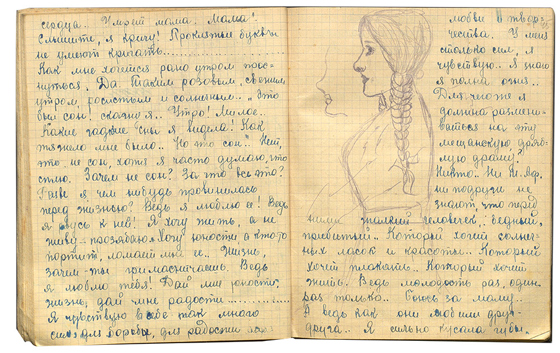 сердца. Умрет мама. Мама!
Слышите, я кричу! Проклятые буквы
не умеют кричать...
Как мне хочется рано утром прос-
нуться. Да. Таким розовым, свежим
утром, росистым и солнечным.. „Это
был сон! скажу я.. Утро! Милое.
Какие гадкие сны я видела! Как
тяжело мне было.. Но это сон". Нет,
это не сон, хотя я часто думаю, что
сплю. Зачем не сон? За что все это?
Разве я чем нибудь провинилась
пред жизнью? Ведь я люблю её! Ведь
я рвусь к ней! Я хочу жить, а не
живу - прозябаю. Хочу юности, а кто-то
портит, ломает мне её.. Жизнь,
зачем ты приласкаешь. Ведь
я люблю тебя! Дай мне юность,
жизнь, дай мне радости...
Я чувствую в себе так много
сил для борьбы, для радости
любви и творч-
чества. У меня
столько сил, я
чувствую. Я знаю
я полна огня..
Для чего же я
должна размени-
ваться на эту
мещанскую, дряб-
лую драму?
Никто. Ни
ни подруги не
знают, что перед
ними жалкий человечек, бедный,
прибитый.. Который хочет солнеч-
ных ласк и красоты.. Который
хочет плакать.. Который хочет
жить. Ведь молодость раз, один
раз только.. Боюсь за маму..
А ведь как они любили друг-
друга.. Я сильно кусала губы.